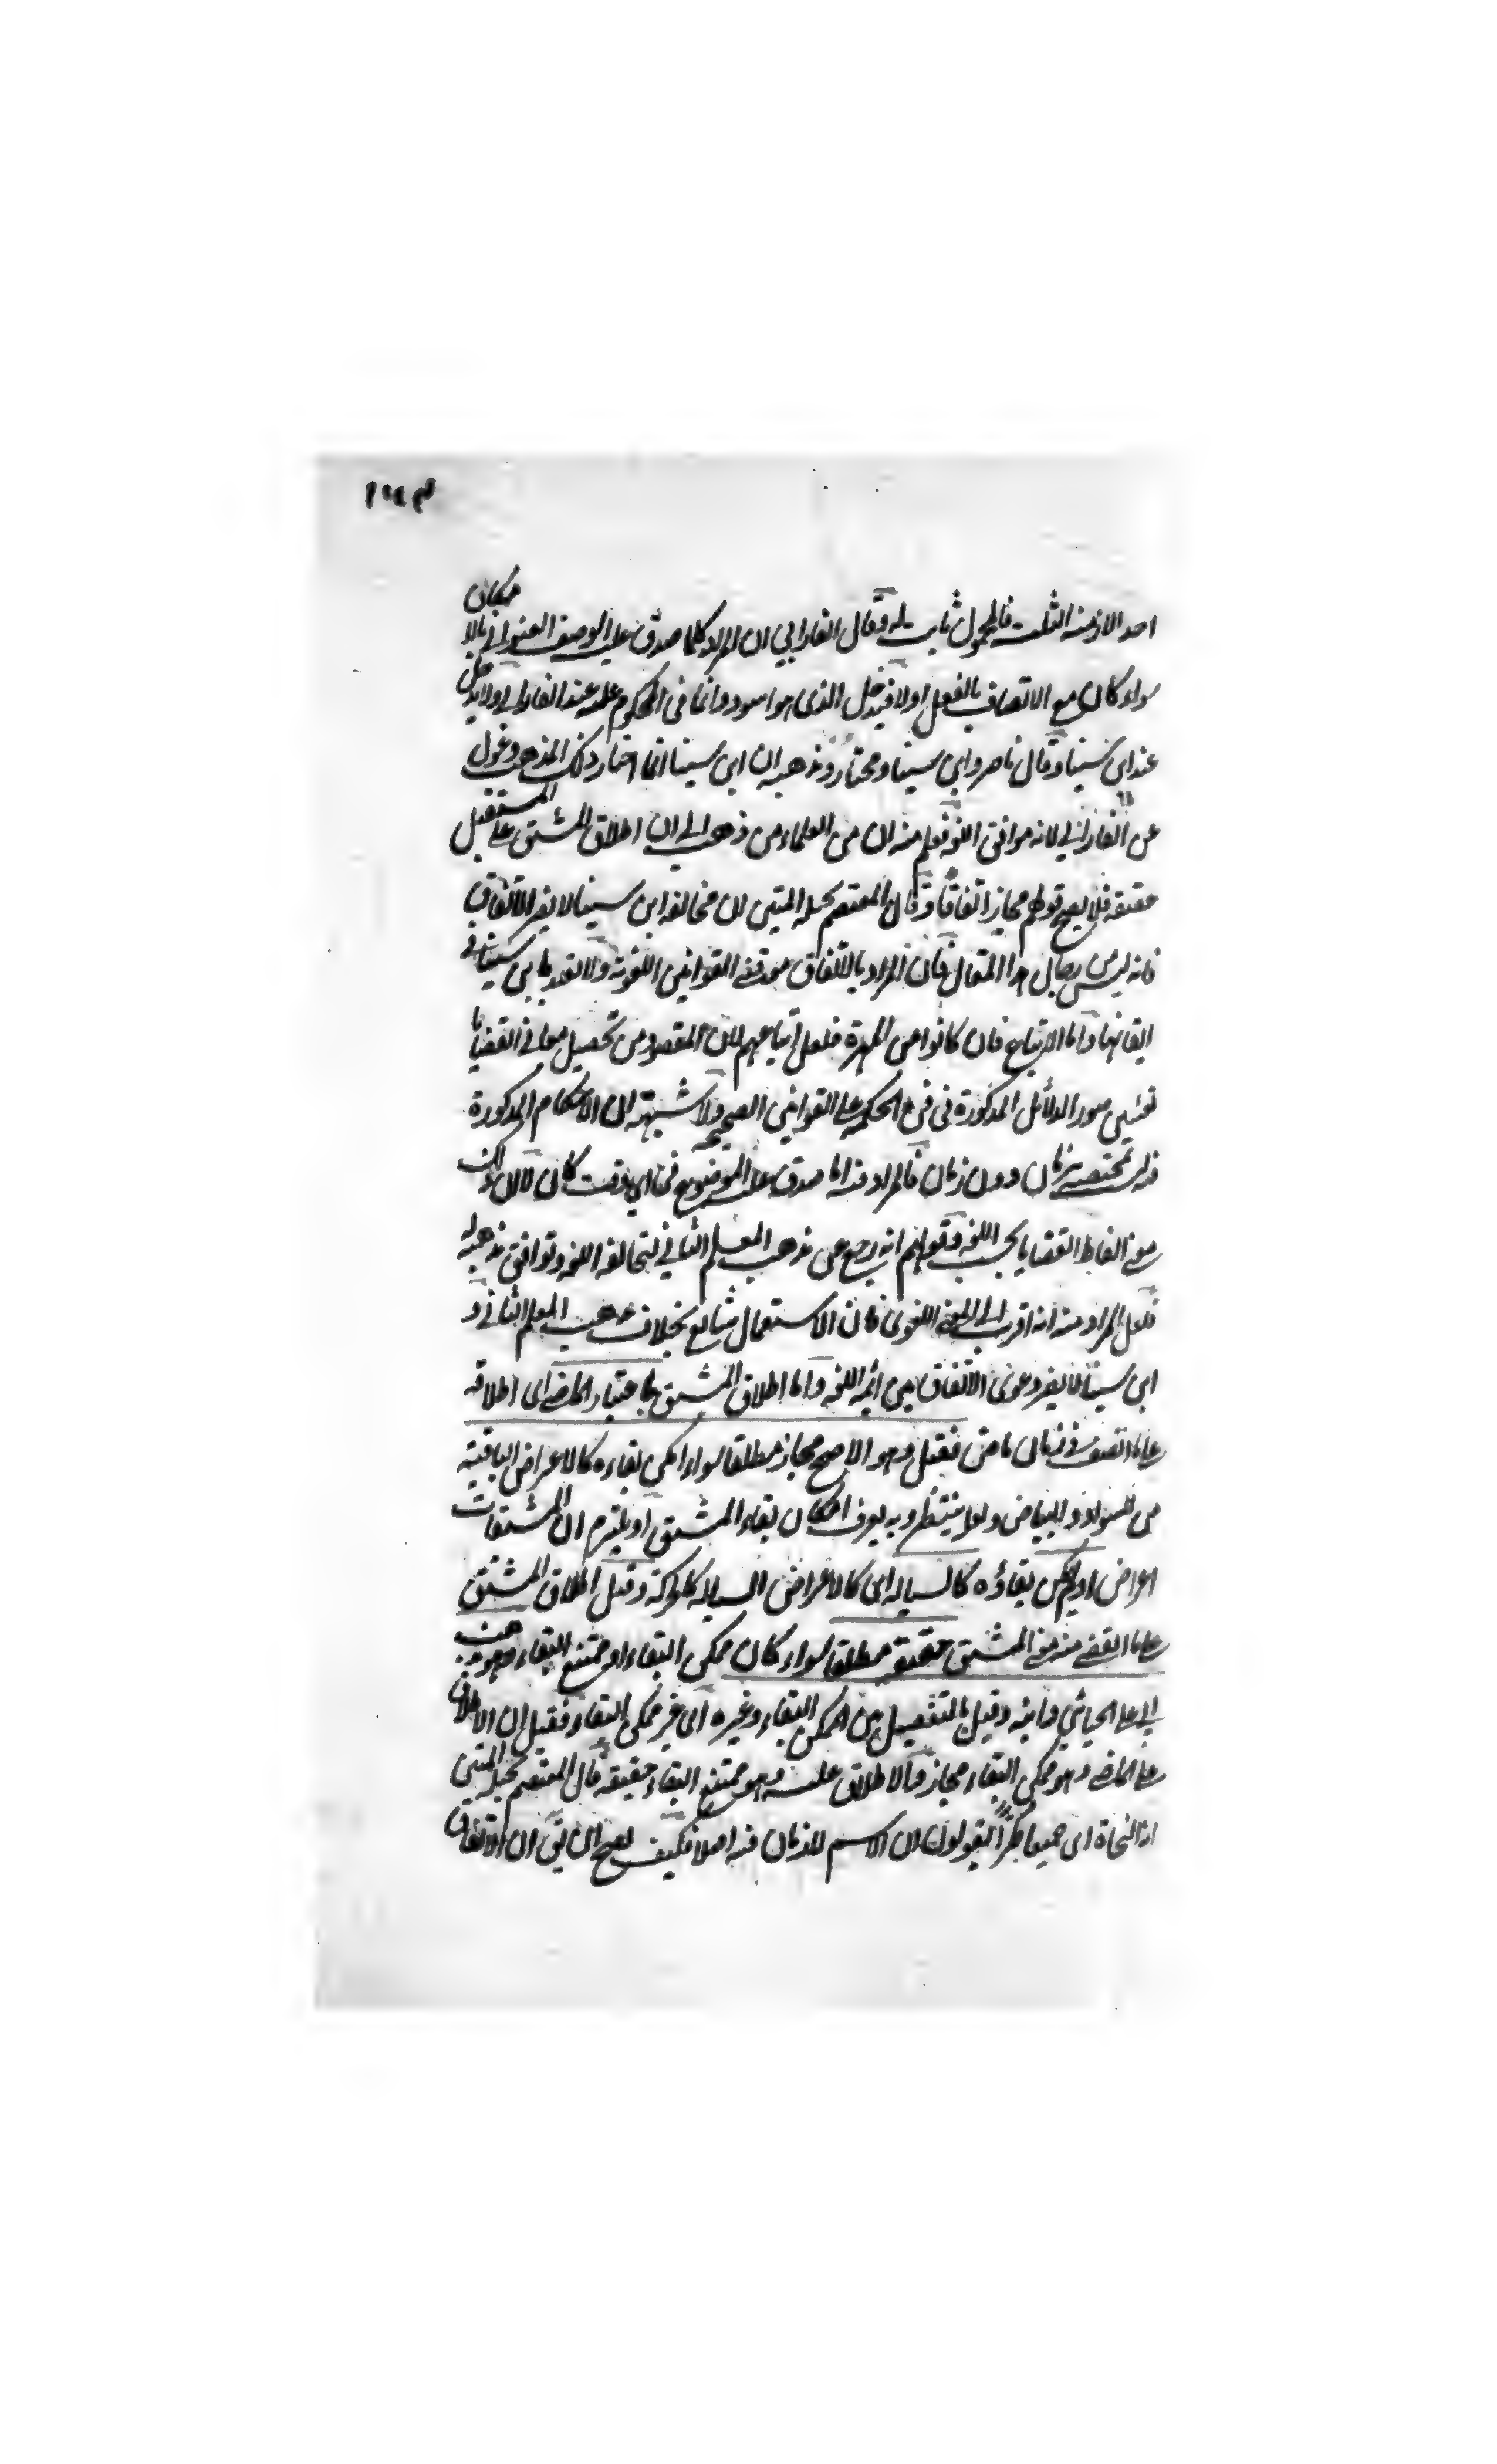 ١٤٣
احد الازمنة الثلث فالمحمول ثابت له وقال الفارابي ان المراد كلما صدق عليه الوصف العنواني بالامكان
سواء كان مع الاتصاف بالفعل اولا فيدخل الذي هو اسود دائما في المحكوم عليه عند الفارابي ولا يدخل
عند ابن سينا وقال ناصروا ابن سينا ومختاروا مذهبه ان ابن سينا انما اختار ذلك المذهب وعدل
عن الفارابي لانه موافق اللغة فعلم منه ان من العلماء من ذهب الى ان اطلاق المشتق على المستقبل
حقيقة فلا يصح قولهم مجاز اتفاقا وقال المعتصم بحبله المتين ان مخالفة ابن سينا لا يضر الاتفاق
فانه ليس من رجال هذا المقال فان المراد بالاتفاق القوانين اللغوية ولا ابن سينا في
اتقانها واما الاتباع فان كانوا من المهرة فلعل اتباعهم لان المقصود من تحصيل معاني القضايا
تعيين صور الدلائل المذكورة في الحكمة على القوانين الصحيحة ولا شبهة ان الاحكام المذكورة
ليست مختصة بزمان دون زمان فالمراد منه اما صدق عليه الموضوع في اي وقت كان لا ان ذلك
معنى الفاظ القضايا بحسب اللغة وقولهم انه رجع عن مذهب المعلم الثاني لتخالفه اللغة وتوافق مذهبه له
فلعل المراد منه انه اقرب الى المعنى اللغوي فان الاستعمال شايع بخلاف مذهب المعلم الثاني و
ابن سينا لا يضر دعوى الاتفاق من ائمة اللغة واما اطلاق المشتق باعتبار الماضي اي اطلاقه
على ما اتصف في زمان ماض فقيل وهو الاصح مجاز مطلقا سواء امكن بقاءه كالاعراض الباقية
من السواد والبياض ولعل ينتظم وبه يعرف امكان بقاء المشتق او يلتزم ان المشتقات
اعراض او لم يمكن بقاؤه كالسيالة اي كالاعراض السيالة كالحركة وقيل اطلاق المشتق
على ما انقضى منه معنى المشتق حقيقة مطلقا سواء كان ممكن البقاء او ممتنع البقاء وهو مذهب
ابي علي الجبائي وابنه وقيل بالتفصيل بين ممكن البقاء وغيره اي غير ممكن البقاء فقيل ان الاطلاق
على الماضي وهو ممكن البقاء مجاز والاطلاق عليه وهو ممتنع البقاء حقيقة قال المعتصم بحبله المتين
ان النحاة اي جميعا طرا يقولون ان الاسم لا زمان فيه اصلا فكيف يصح ان يق ان الاتفاق